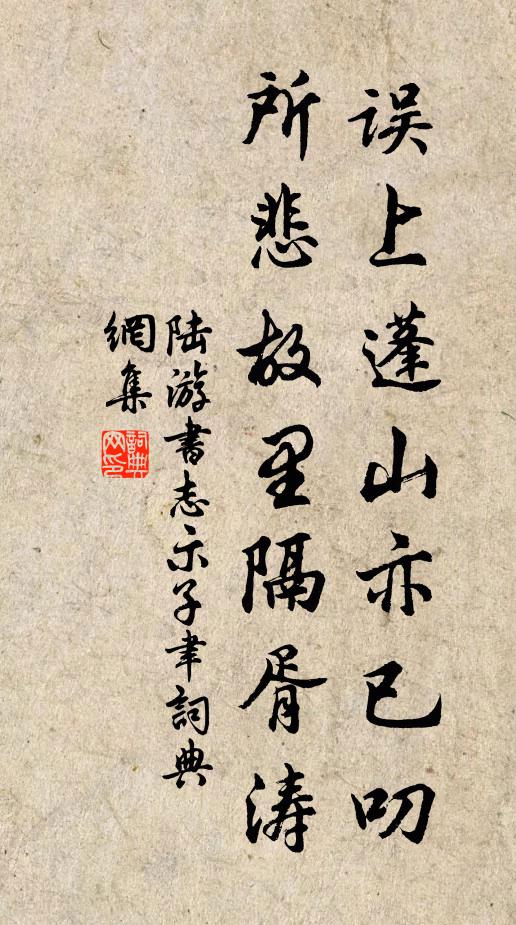 误上蓬山亦已叨
所悲故里隔胥涛
陆游書志示子聿詞典
網集
詞典
网印